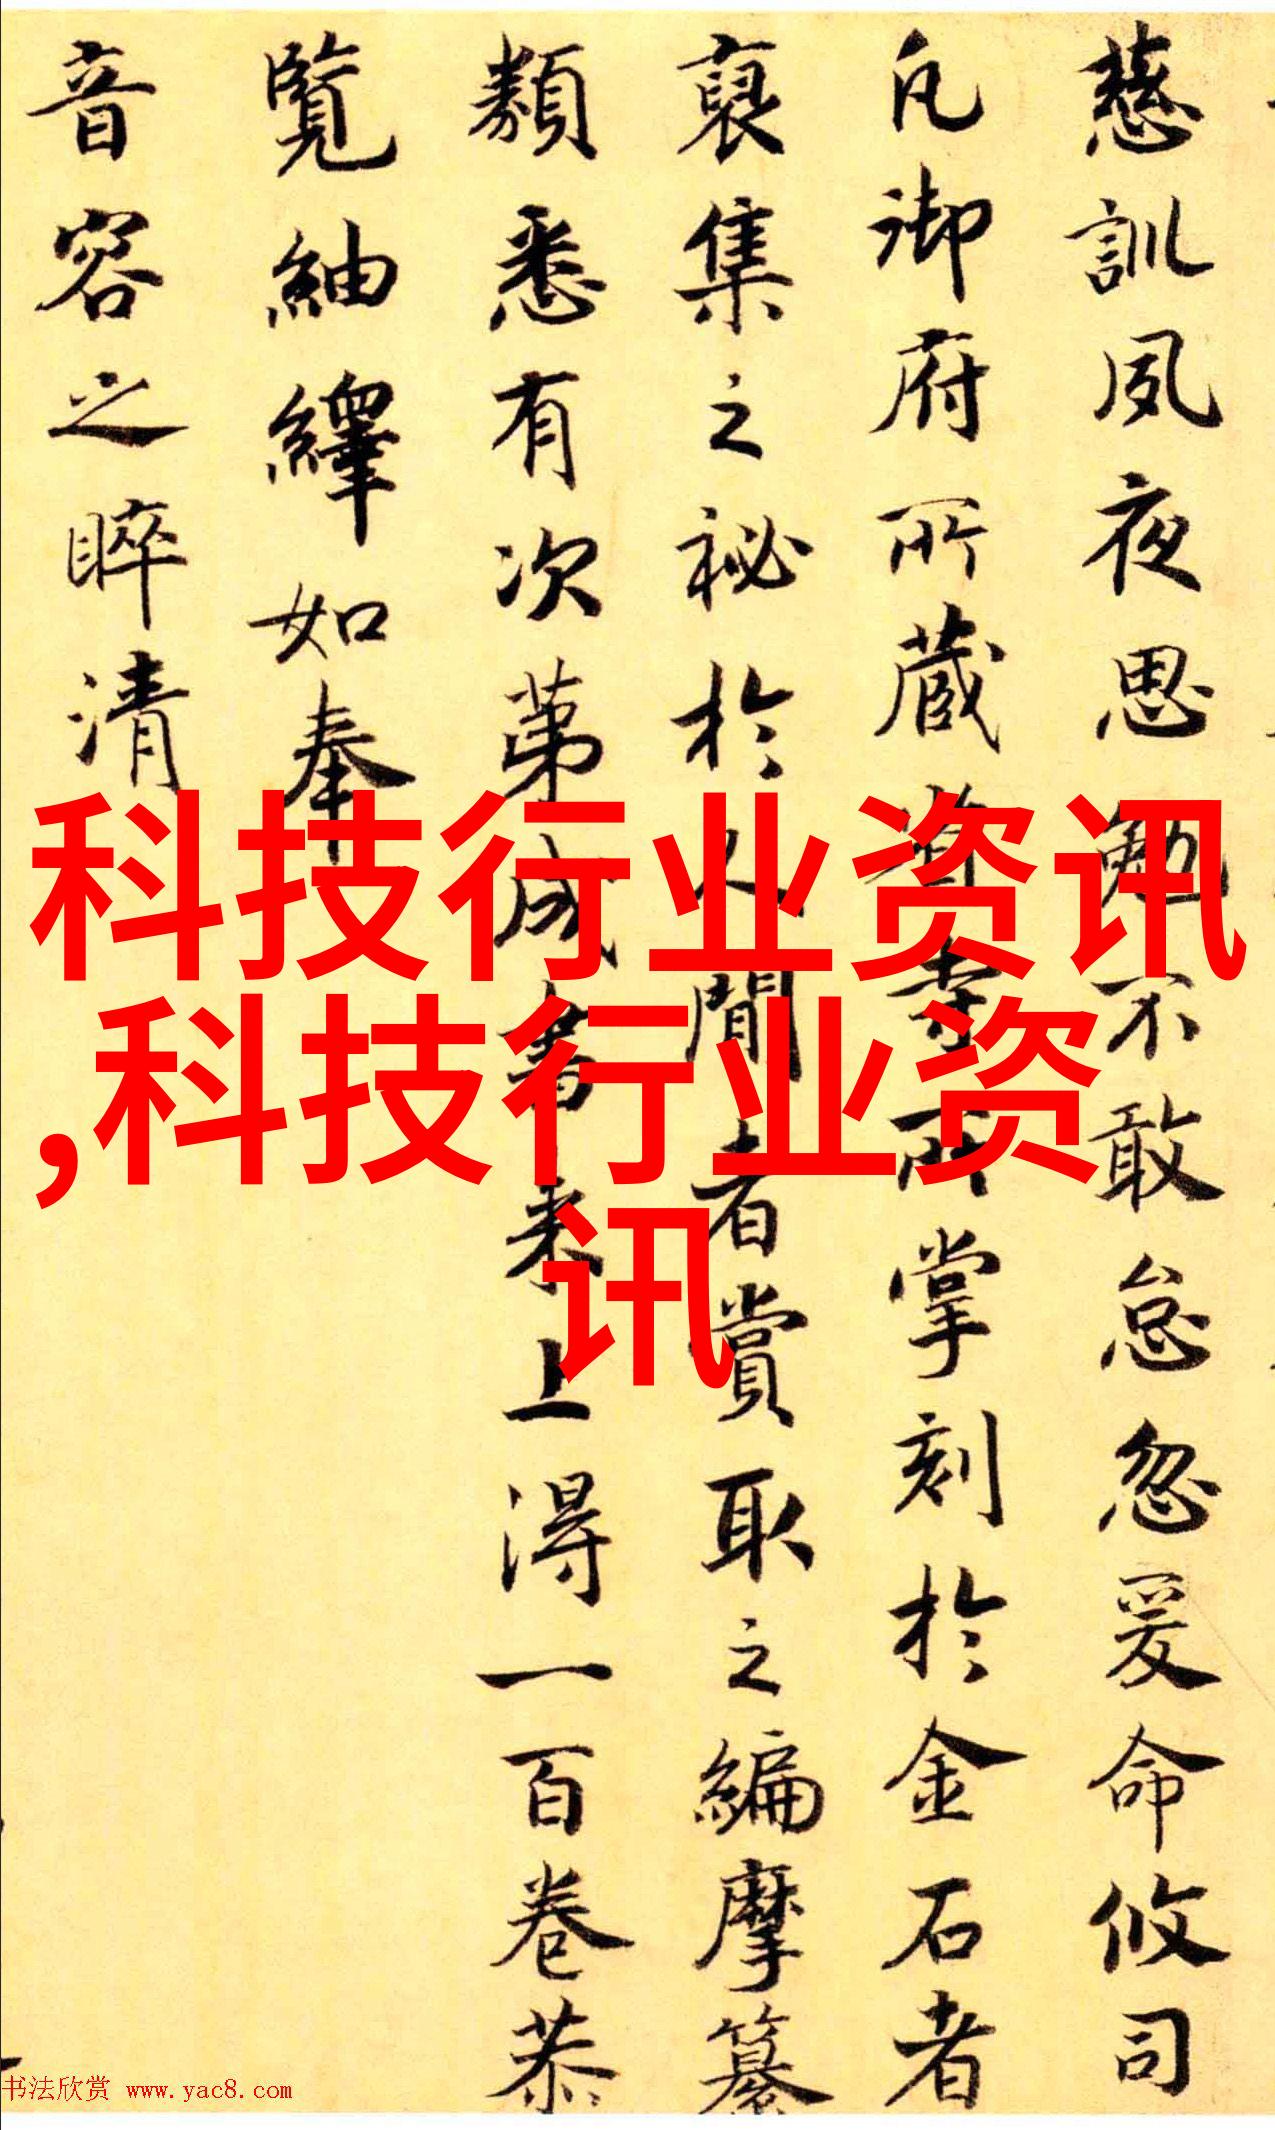 慈訓夙夜思勉不敢怠忽爰命攸司
凡御府所藏將帥所掌刻於金石者
裒集之祕於人間者賞取之編摩纂
類悉有次第成書來上得一百卷恭
覽紬繹如奉
音容之睟清
科技行业资讯
,科技行业资
讯
书法欣赏 www.yac8.com